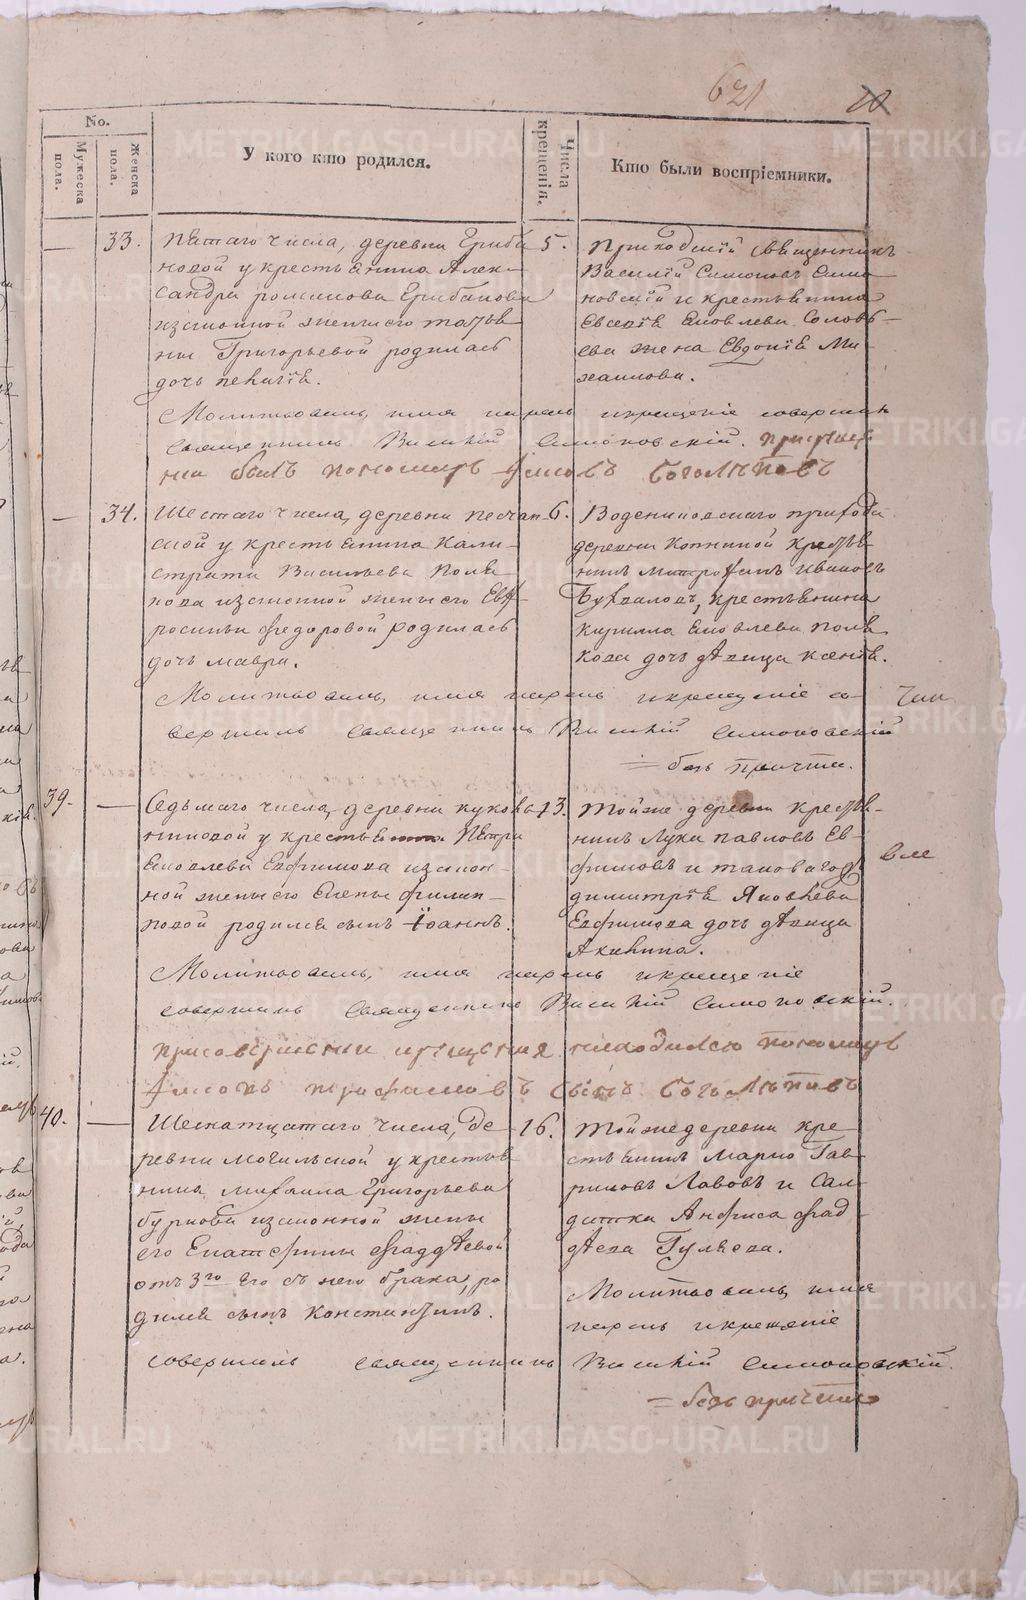 621
10
No.
Мужеска пола.
Женска пола.
У кого кто родился.
Числа крещенія.
Кто были воспріемники.
33.
Пятаго числа, деревни Гриба
новой у крестьянина Алек
сандра Романова Грибанова
изаконной жены его Татья
ны Григорьевой родилась
дочь Пелагія.
5.
Приходскій священникъ
Василій Симоновъ Симо
новскій и крестьянина
Евсевія Яковлева Соловь
ева жена Евдокія Ми
хаилова.
Молитвовалъ, имя нарекъ и крещеніе совершилъ
священникъ Василій Симоновскій. При креще
ніи былъ пономарь Боголѣповъ
34.
Шестаго числа, деревни Песчан
ской у крестьянина Кали
страта Васильева Поля
кова изаконной жены его Евф
росиньи Федоровой родилась
дочь Мавра.
6.
Воденниковскаго прихода
деревни Копниной крестья
нинъ Митрофанъ Ивановъ
Бухваловъ, крестьянина
Кирилла Яковлева Поля
кова дочь дѣвица Ксенія.
Молитвовалъ, имя нарекъ и крещеніе со
вершилъ священникъ Василій Симоновскій
= безъ причта.
39.
Седьмаго числа, деревни Кукова
киновой у крестьянина Петра
Яковлева Евфимова изакон
ной жены его Елены Филип
повой родился сынъ Іоаннъ.
13.
Тойже деревни крестья
нинъ Лука Павловъ Ев
фимовъ и таковагожъ
Димитрія Яковлева
Евфимова дочь дѣвица
Акилина.
Молитвовалъ, имя нарекъ и крещеніе
совершилъ священникъ Василій Симоновскій.
При совершеніи крещенія находился пономарь
Трофимовъ сынъ Боголѣповъ
40.
Шеснатцатаго числа, де
ревни Могильской у крестья
нина Михаила Григорьева
Буркова изаконной жены
его Екатерины Фаддѣевой
отъ 3го его съ нею брака, ро
дился сынъ Константинъ.
16.
Тойже деревни кре
стьянинъ Марко Гав
риловъ Лавовъ и сол
датка Анфиса Фад
дѣева Гуляева.
Молитвовалъ, имя
нарекъ и крещеніе
совершилъ священникъ Василій Симоновскій.
= безъ причта
METRIKI.GASO-URAL.RU